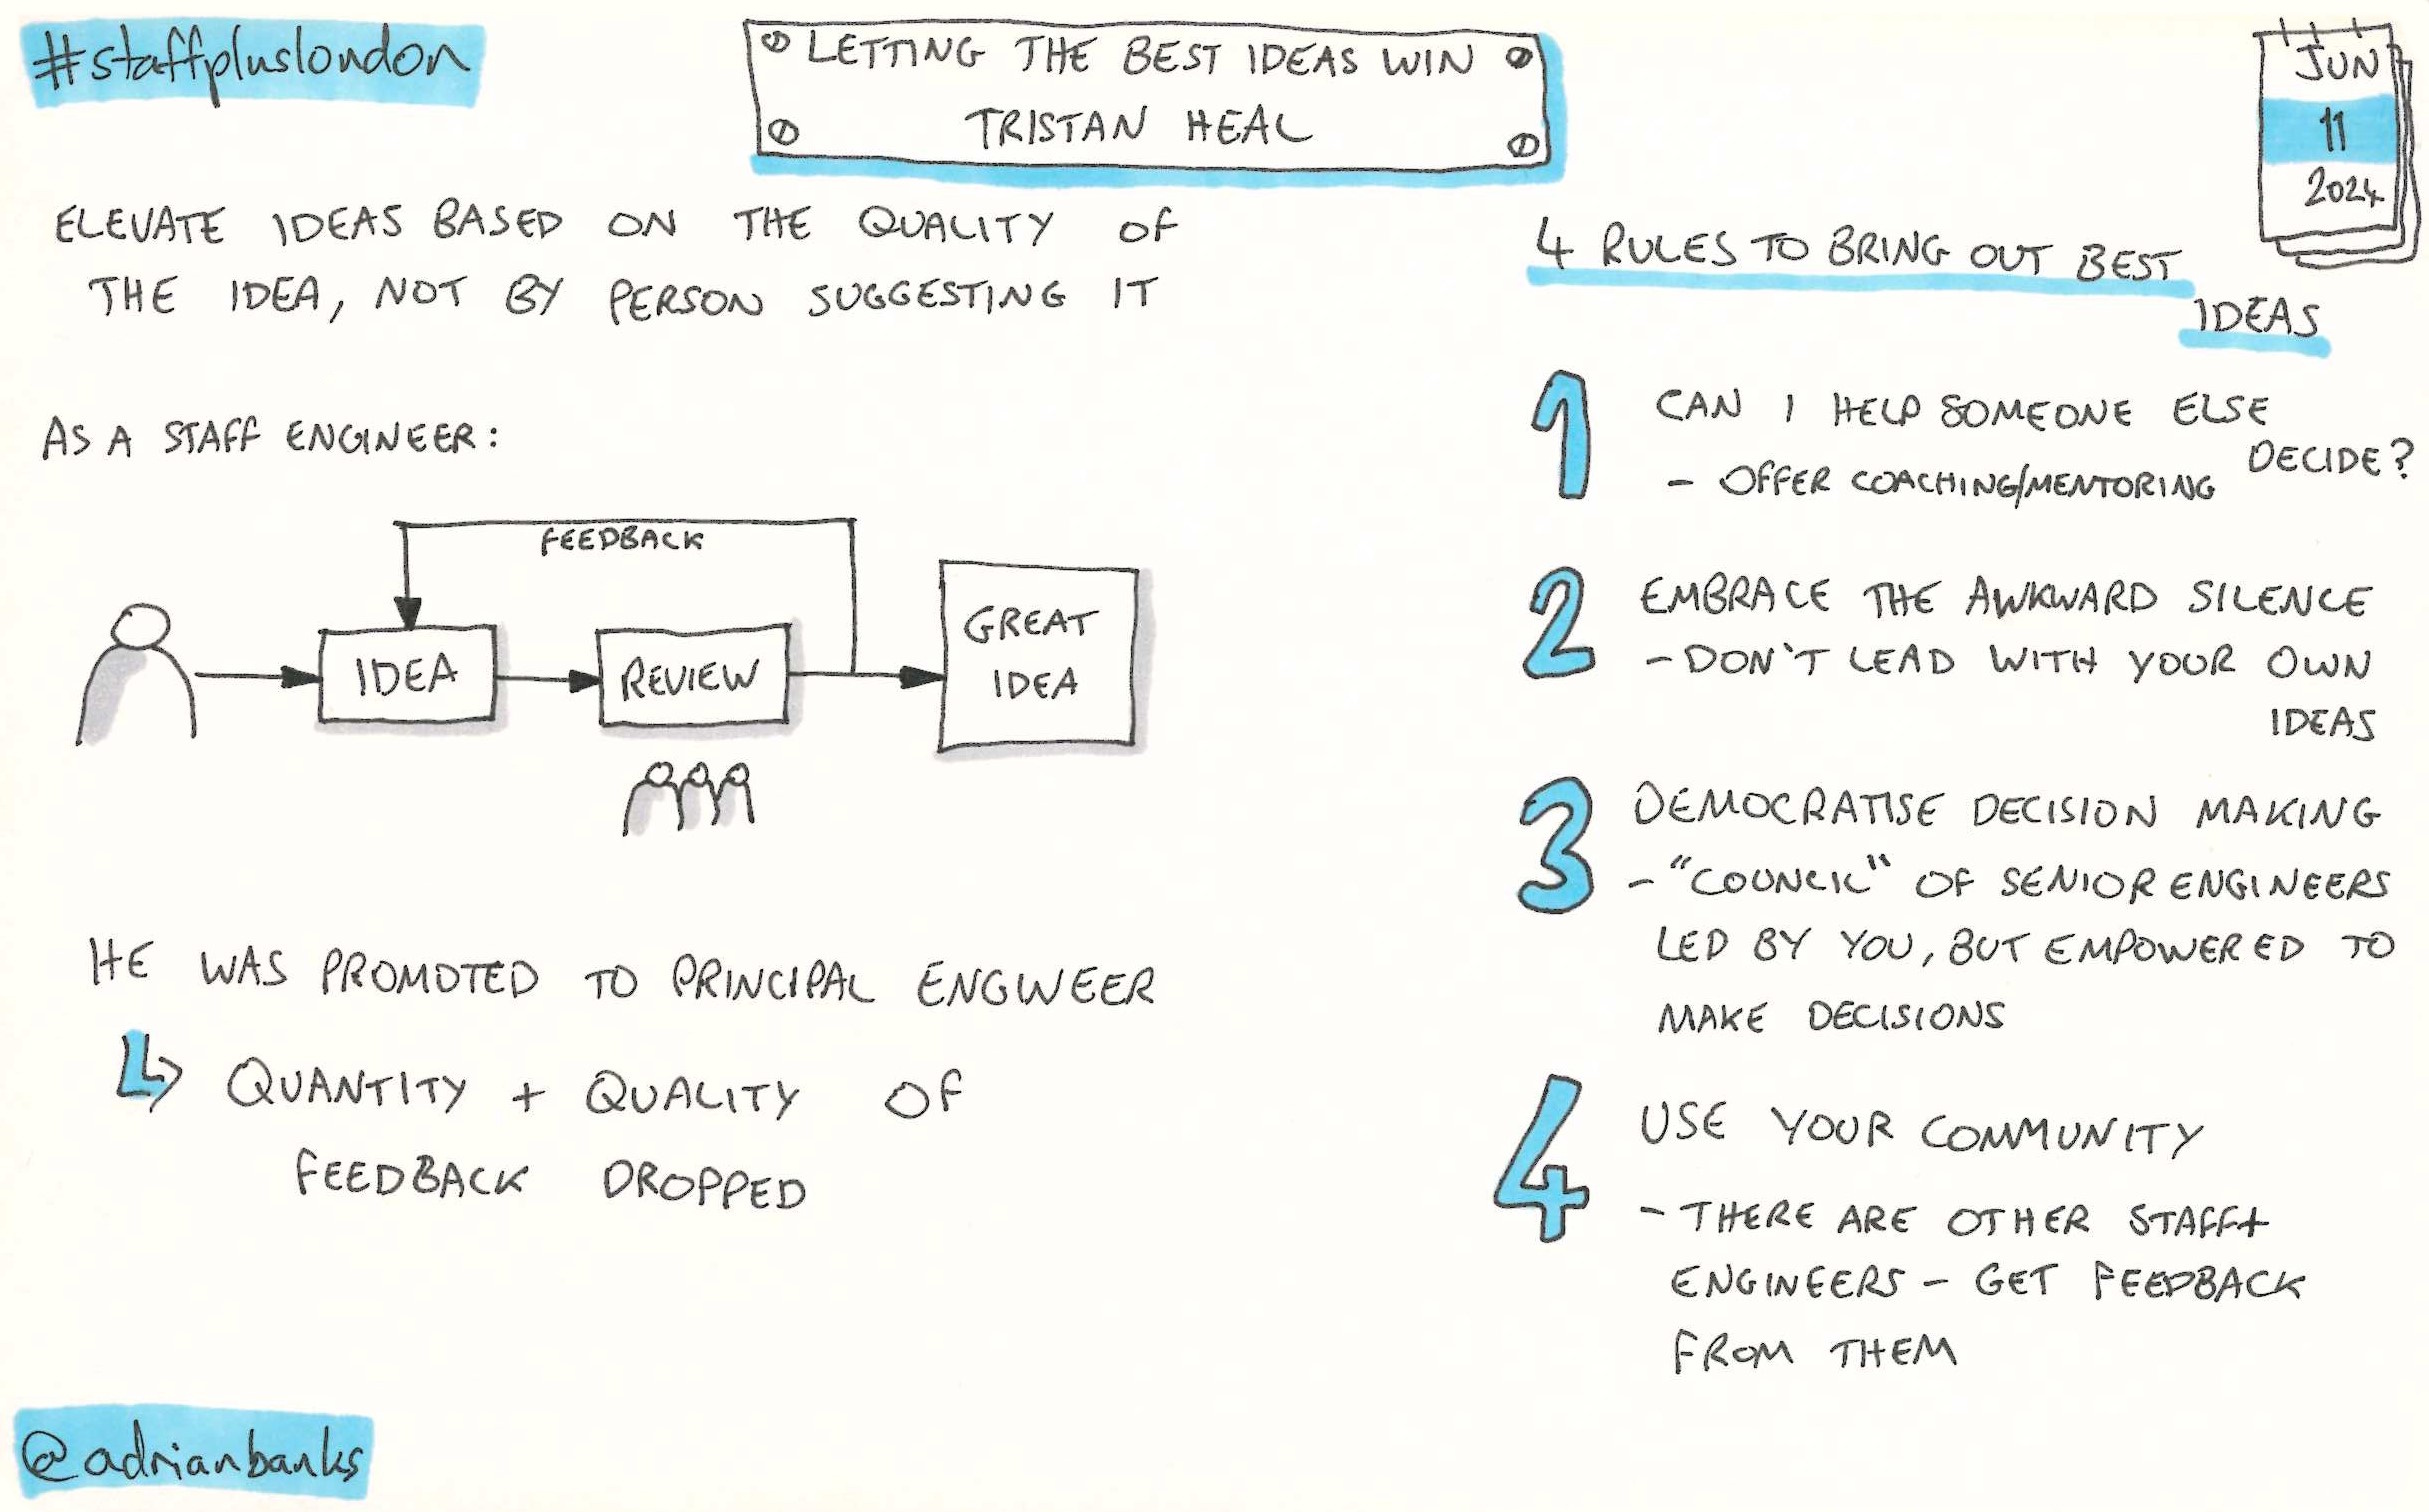 #staffpluslondon
LETTING THE BEST IDEAS WIN
TRISTAN HEAL
JUN
11
2024
ELEVATE IDEAS BASED ON THE QUALITY OF
THE IDEA, NOT BY PERSON SUGGESTING IT
AS A STAFF ENGINEER:
FEEDBACK
IDEA
REVIEW
GREAT
IDEA
HE WAS PROMOTED TO PRINCIPAL ENGINEER
QUANTITY + QUALITY OF
FEEDBACK DROPPED
4 RULES TO BRING OUT BEST
IDEAS
1 CAN I HELP SOMEONE ELSE
DECIDE?
- OFFER COACHING/MENTORING
2 EMBRACE THE AWKWARD SILENCE
- DON'T LEAD WITH YOUR OWN
IDEAS
3 DEMOCRATISE DECISION MAKING
- "COUNCIL" OF SENIOR ENGINEERS
LED BY YOU, BUT EMPOWERED TO
MAKE DECISIONS
4 USE YOUR COMMUNITY
- THERE ARE OTHER STAFF+
ENGINEERS - GET FEEDBACK
FROM THEM
@adrianbanks